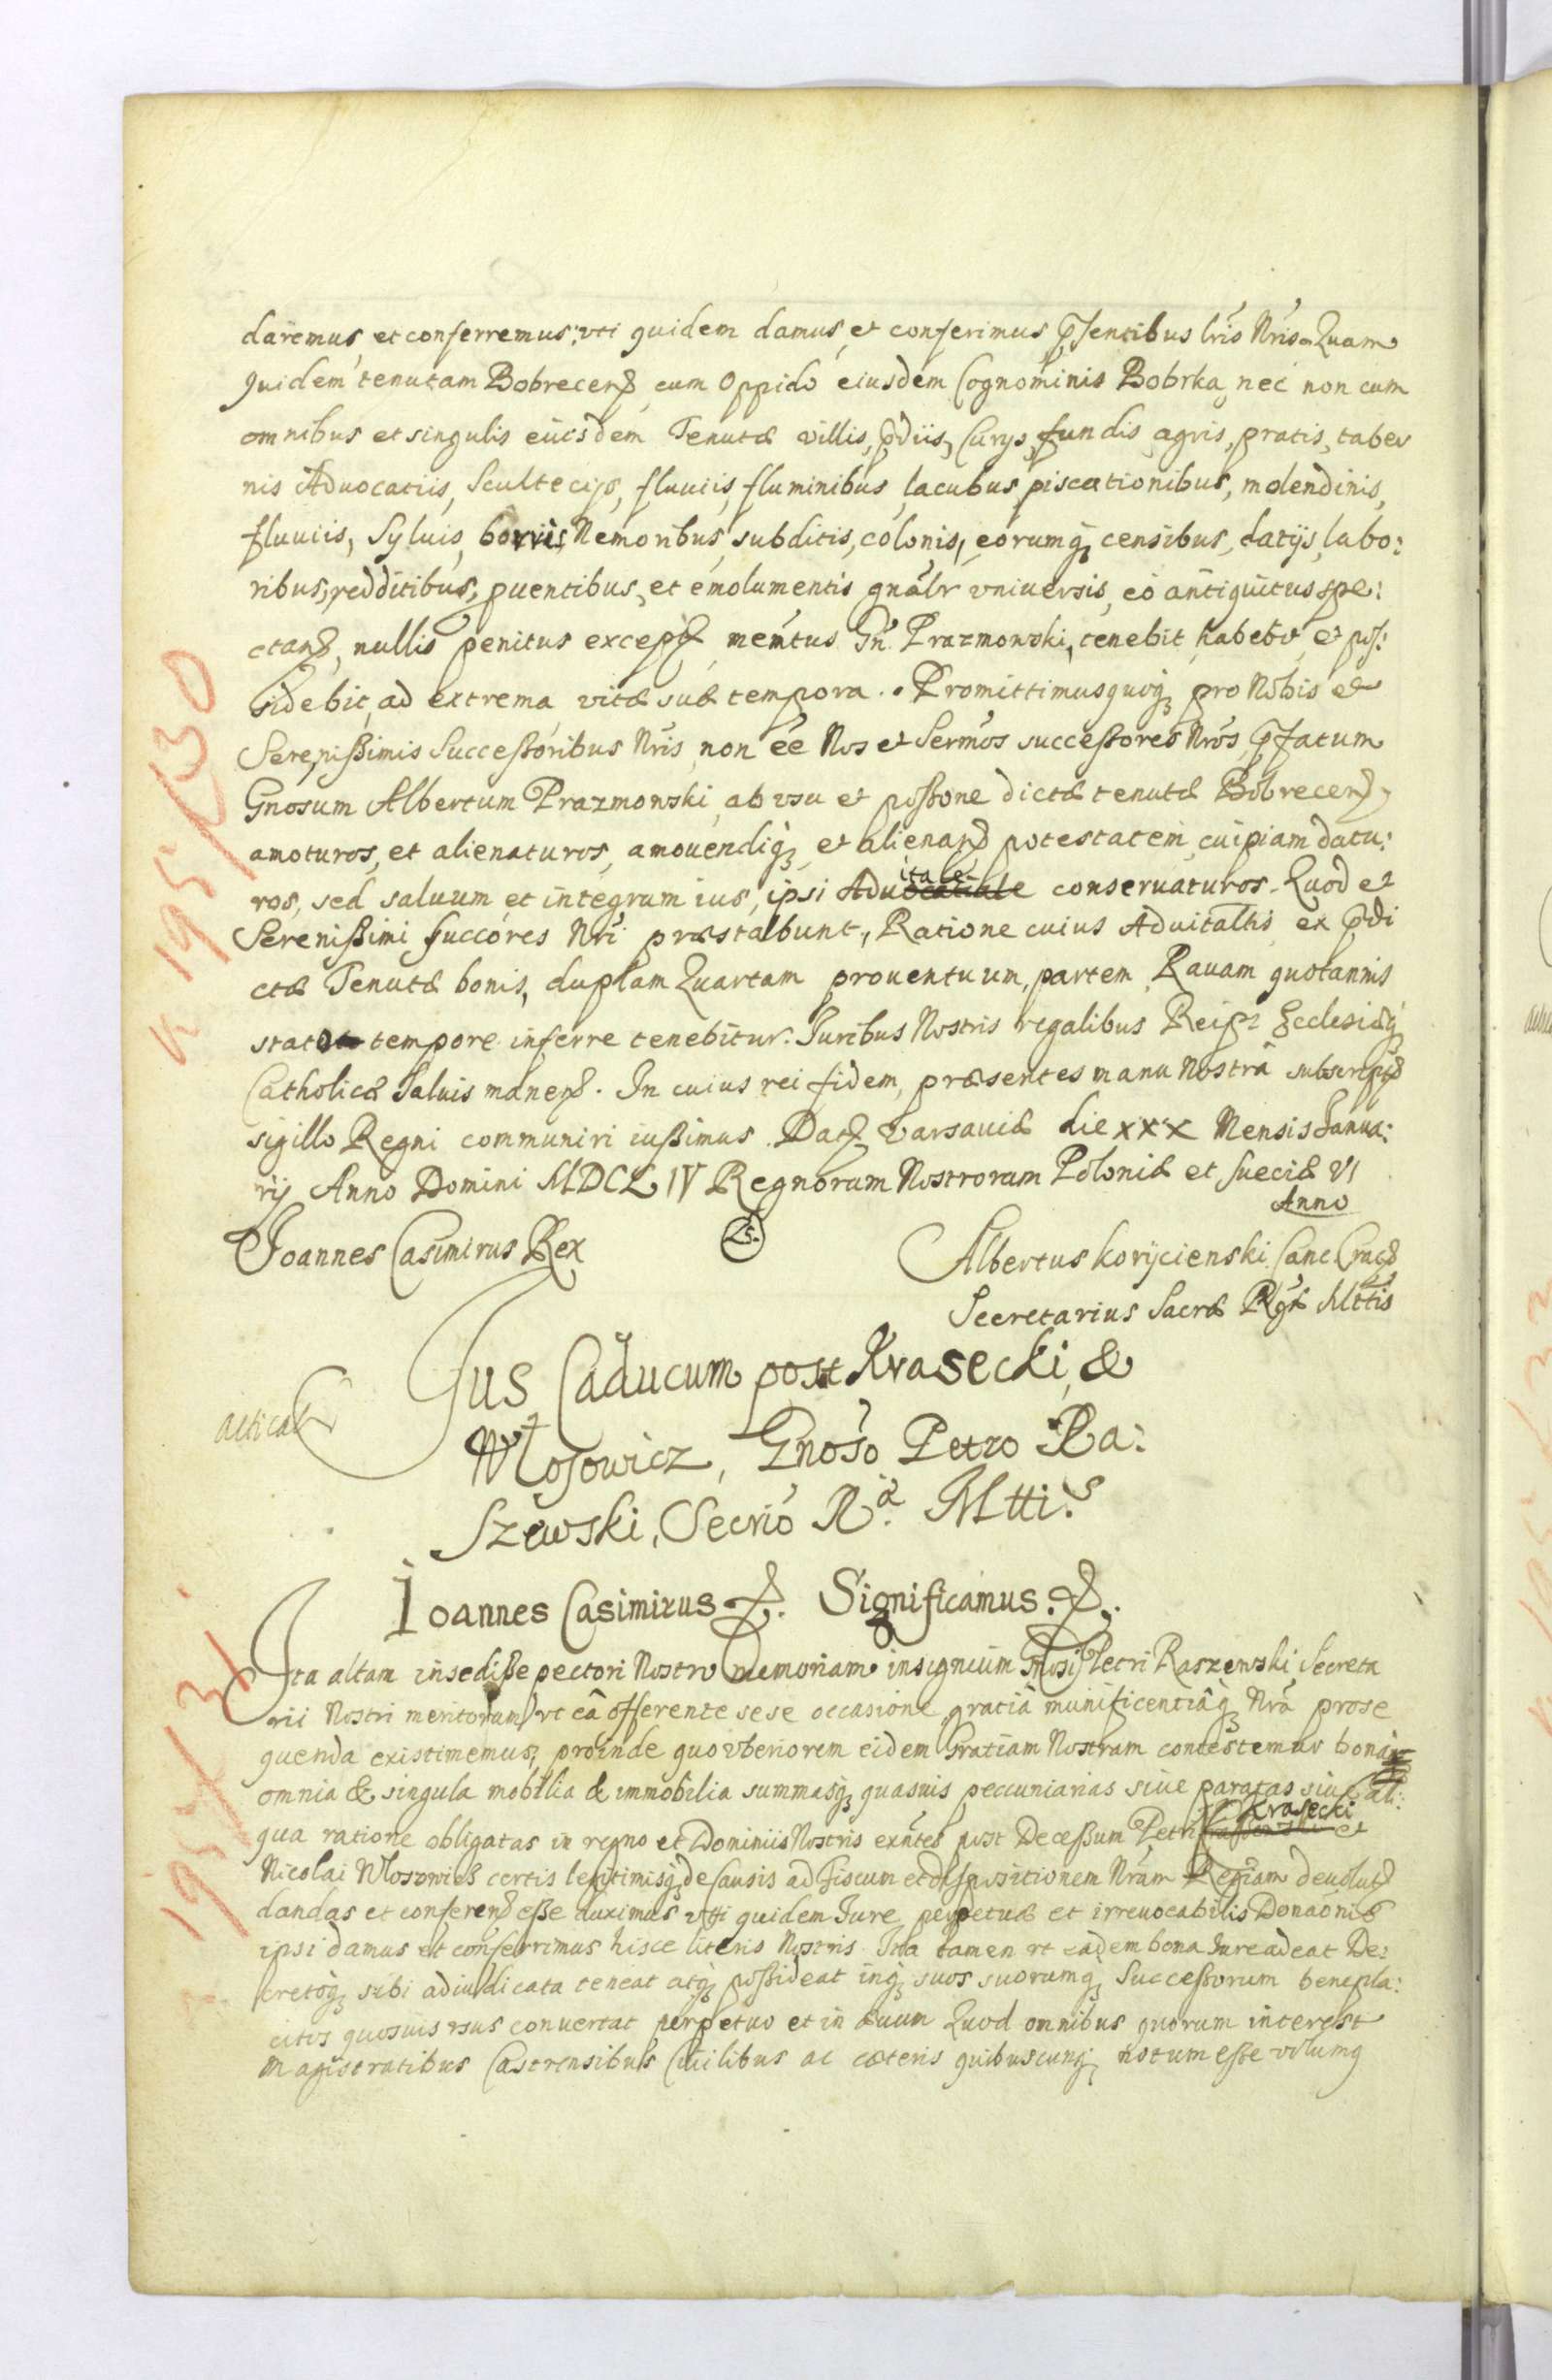 daremus, et conferremus: vti quidem damus, et conferimus pñtibus lris Nris. Quam
quidem tenutam Bobrecen̄, cum Oppido eiusdem Cognominis Bobrka, nec non cum
omnibus et singulis eiusdem Tenutæ villis, p̄diis, Curys, fundis, agris, pratis, taber
nis Advocatiis, Scultecijs, fluuiis, fluminibus, lacubus, piscationibus, molendinis,
fluuiis, Syluis, borris, Nemoribus, subditis, colonis, eorumq; censibus, datijs, labo:
ribus, redditibus, puentibus, et emolumentis gnalr vniuersis, eo antiquitus spe:
ctan̄, nullis penitus except̄ memtus Gn. Prazmowski, tenebit, habebit, et pos:
sidebit, ad extrema vitæ suæ tempora. Promittimusquoq; pro Nobis et
Serenißimis Successoribus Nris, non ee Nos et Sermos successores Nros, p̄fatum
Gnosum Albertum Prazmowski, ab vsu et possone dictæ tenutæ Bobrecen̄,
amoturos, et alienaturos, amouendiq; et alienan̄ potestatem, cuipiam datu:
ros, sed saluum et integrum ius, ipsi Advocatiale itale conseruaturos. Quod et
Serenißimi succores Nri præstabunt, Ratione cuius Aduitaltis ex p̄di
ctæ Tenutæ bonis, duplam Quartam prouentuum, partem Rauam quotannis
stato tempore inferre tenebitur. Juribus Nostris regalibus Reip: Ecclesiæq;
Catholicæ Saluis manen̄. In cuius rei fidem, præsentes manu Nostra subscript̄
sigillo Regni communiri iußimus. Dat̄ Varsauiæ die XXX Mensis Janua:
rij Anno Domini MDCLIV Regnorum Nostrorum Poloniæ et Sueciæ VI
Anno
Joannes Casimirus Rex
LS.
Albertus Korijcienski Canc. Crac̄
Secretarius Sacræ Rgæ Mttis
Jus Caducum post Krasecki, &
acticat
Włosowicz, Gnoso Petro Ra:
szewski, Secrio R.æ Mtti.s
Ioannes Casimirus &. Significamus. &.
Ita altam insediße pectori Nostro memoriam insignium Gnosi Petri Raszewski Secreta
rii Nostri meritorum, vt ea offerente sese occasione, gratia munificentiaq; Nra prose
quenda existimemus, proinde quo vberiorem eidem Gratiam Nostram contestemur bona
omnia & singula mobilia & immobilia summasq; quasuis peccuniarias siue paratas siue ali:
qua ratione obligatas in regno et Dominiis Nostris exntes post Deceßum Petri Krasecki et
Nicolai Włosowicz certis legitimisq; de Causis ad Fiscum et dispositionem Nram Regiam deuolut̄
dandas et conferen̄ eße duximus vti quidem Jure perpetuæ et irreuocabilis Donaonis
ipsi damus et conferrimus hisce literis Nostris. Ita tamen vt eadem bona Jure adeat De:
cretoq; sibi adiudicata teneat atq; poßideat inq; suos suorumq; Succeßorum benepla:
citos quosuis vsus conuertat perpetuo et in æuum Quod omnibus quorum interest
Magistratibus Castrensibus Ciuilibus ac cæteris quibuscunq; notum eße volumq
K 195/130
K 195/131